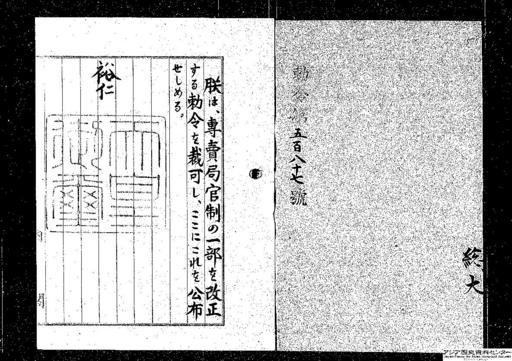 勅令第五百八十七號
総大
朕は、專賣局官制の一部を改正
する勅令を裁可し、ここにこれを公布
せしめる。
裕仁
アジア歴史資料センター